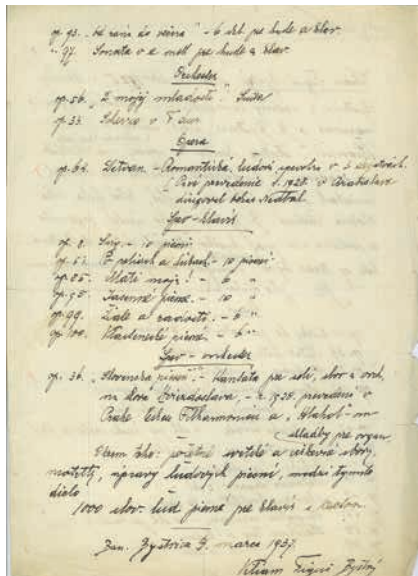 op. 93. „Od rána do večera" – 6 skl. pre husle a klav.
" 97. Sonata v e moll pre husle a klav.
Orchester
op. 56. „Z mojej mladosti". Suita
op. 33. Scherzo v F dur
Opera
op. 64. Detvan – Romantická, ľudová spevohra v 3 dejstvách.
Prvé prevedenie r. 1928. v Bratislave
dirigoval Oskar Nedbal
Spev – klavír
op. 8. – 10 piesní
op. 51. Po poliach a lúkach – 10 piesní
op. 85. Mati moja! – 6 "
op. 95. Jasenné piesne – 10 "
op. 99. Žiale a radosti – 6 "
op. 100. piesne – 6 "
Spev – orchester
op. 36. „Slovenská pieseň" – Kantáta pre soli, sbor a orch.
na slová Hviezdoslava, – r. 1928. prevedená v
Prahe Českou Filharmoniou a „Hlahol"-om
Skladby pre organ,
Okrem toho: početné svetské a cirkevné sbory,
motettá, úpravy ľudových piesní, medzi týmito
dielo
1000 slov. ľud. piesní pre klavír
Ban. Bystrica 9. marca 1937.
Viliam Figuš Bystrý